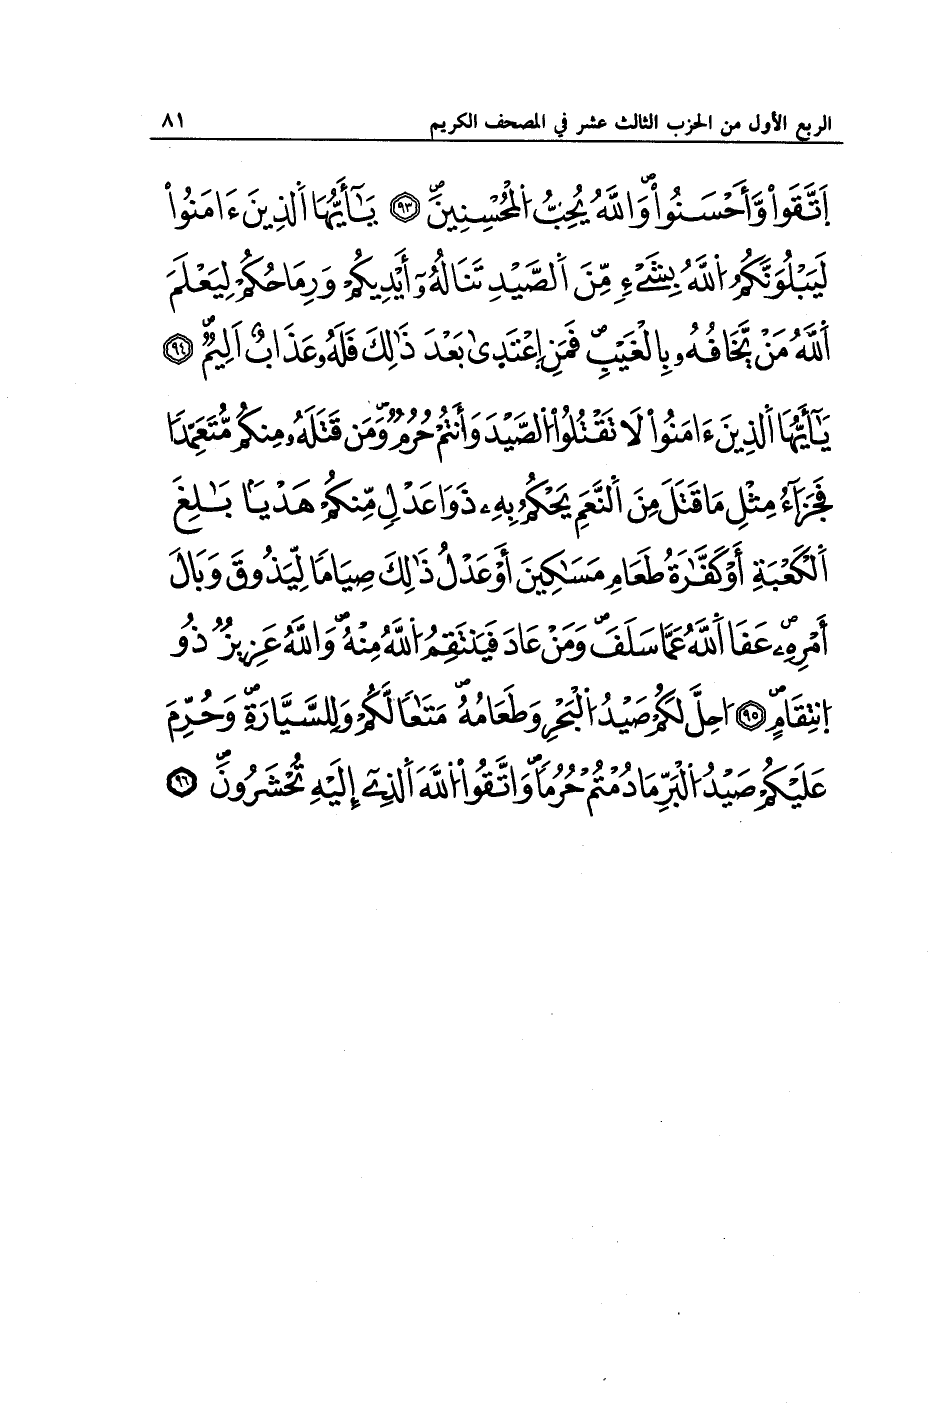 الربع الأول من الحزب الثالث عشر في المصحف الكريم ٨١
اَتَّقَواْ وَّأَحْسَنُواْۖ وَاللَّهُ يُحِبُّ اُ۬لْمُحْسِنِينَۖ ٩٣ يَٰٓأَيُّهَا اَ۬لذِينَ ءَامَنُواْ
لَيَبْلُوَنَّكُمُ اُ۬للَّهُ بِشَےْءٖ مِّنَ اَ۬لصَّيْدِ تَنَالُهُۥٓ أَيْدِيكُمْ وَرِمَاحُكُمْ لِيَعْلَمَ
اَ۬للَّهُ مَنْ يَّخَافُهُۥ بِالْغَيْبِۖ فَمَنِ اِ۪عْتَد۪ىٰ بَعْدَ ذَٰلِكَ فَلَهُۥ عَذَابٌ اَلِيمٌۖ ٩٤
يَٰٓأَيُّهَا اَ۬لذِينَ ءَامَنُواْ لَا تَقْتُلُواْ اُ۬لصَّيْدَ وَأَنتُمْ حُرُمٌۖ وَمَن قَتَلَهُۥ مِنكُم مُّتَعَمِّداٗ
فَجَزَآءُ مِثْلِ مَا قَتَلَ مِنَ اَ۬لنَّعَمِ يَحْكُمُ بِهِۦ ذَوَا عَدْلٖ مِّنكُمْ هَدْياَۢ بَٰلِغَ
اَ۬لْكَعْبَةِ أَوْ كَفَّٰرَةُ طَعَامِ مَسَٰكِينَ أَوْ عَدْلُ ذَٰلِكَ صِيَاماٗ لِّيَذُوقَ وَبَالَ
أَمْرِهِۦۖ عَفَا اَ۬للَّهُ عَمَّا سَلَفَۖ وَمَنْ عَادَ فَيَنتَقِمُ اُ۬للَّهُ مِنْهُۖ وَاللَّهُ عَزِيزٞ ذُو
اُ۪نتِقَامٍۖ ٩٥ اُ۟حِلَّ لَكُمْ صَيْدُ اُ۬لْبَحْرِ وَطَعَامُهُۥۖ مَتَٰعاٗ لَّكُمْ وَلِلسَّيَّارَةِۖ وَحُرِّمَ
عَلَيْكُمْ صَيْدُ اُ۬لْبَرِّ مَا دُمْتُمْ حُرُماٗۖ وَاتَّقُواْ اُ۬للَّهَ اَ۬لذِےٓ إِلَيْهِ تُحْشَرُونَۖ ٩٦